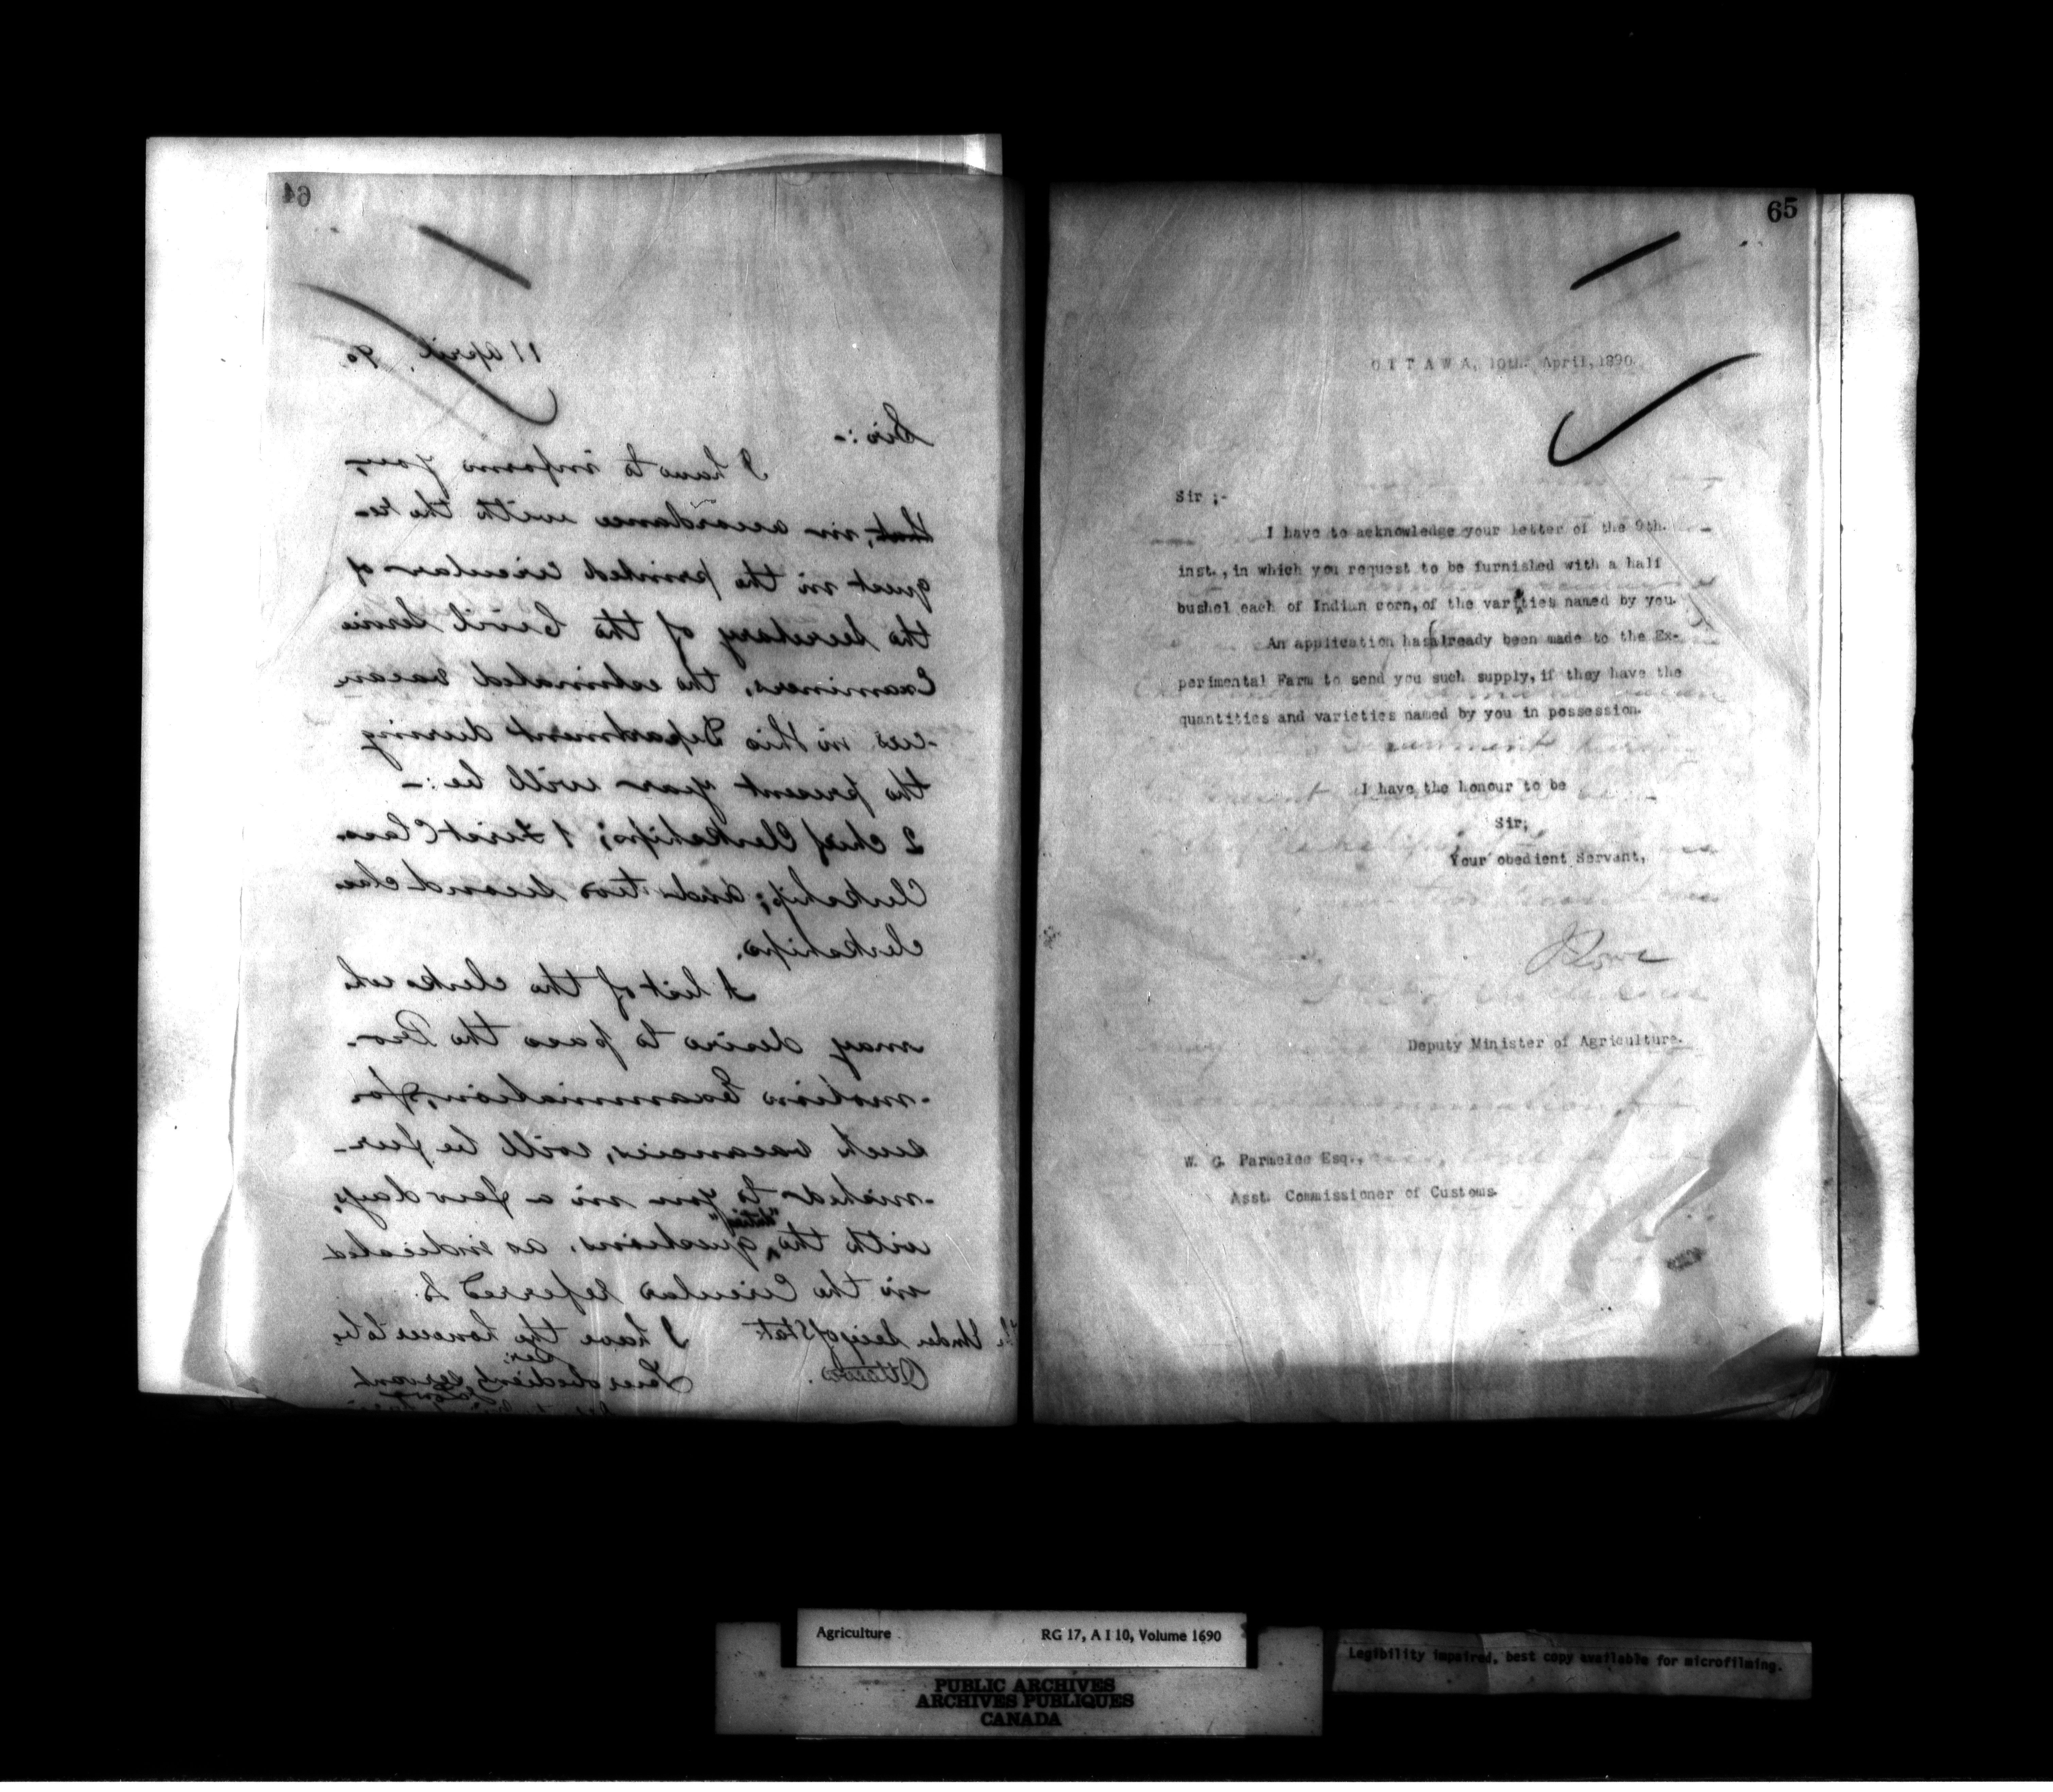 64
11 April, 90.
Sir:-
I have to inform you,
that, in accordance with the re-
quest in the printed circular of
the Secretary of the Civil Service
Examiners, the estimated vacan
-cies in this Department during
the present year will be:-
2 Chief Clerkships; 1 First Class
Clerkship; and two Second class
clerkships.
A list of the clerks who
may desire to pass the Pro-
-motion Examination, for
such vacancies, will be fur-
-nished to you in a few days,
with the "duties" questions, as indicated
in the Circular referred to.
I have the honour to be,
Sir,
Your obedient servant
Under Secy of State
Ottawa.
65
OTTAWA, 10th. April, 1890.
Sir ;-
I have to acknowledge your letter of the 9th.
inst., in which you request to be furnished with a half
bushel each of Indian corn, of the varieties named by you.
An application has already been made to the Ex-
perimental Farm to send you such supply, if they have the
quantities and varieties named by you in possession.
I have the honour to be
Sir,
Your obedient Servant,
J Lowe
Deputy Minister of Agriculture.
W. G. Parmelee Esq.,
Asst. Commissioner of Customs.
Agriculture RG 17, A I 10, Volume 1690
PUBLIC ARCHIVES
ARCHIVES PUBLIQUES
CANADA
Legibility impaired, best copy available for microfilming.